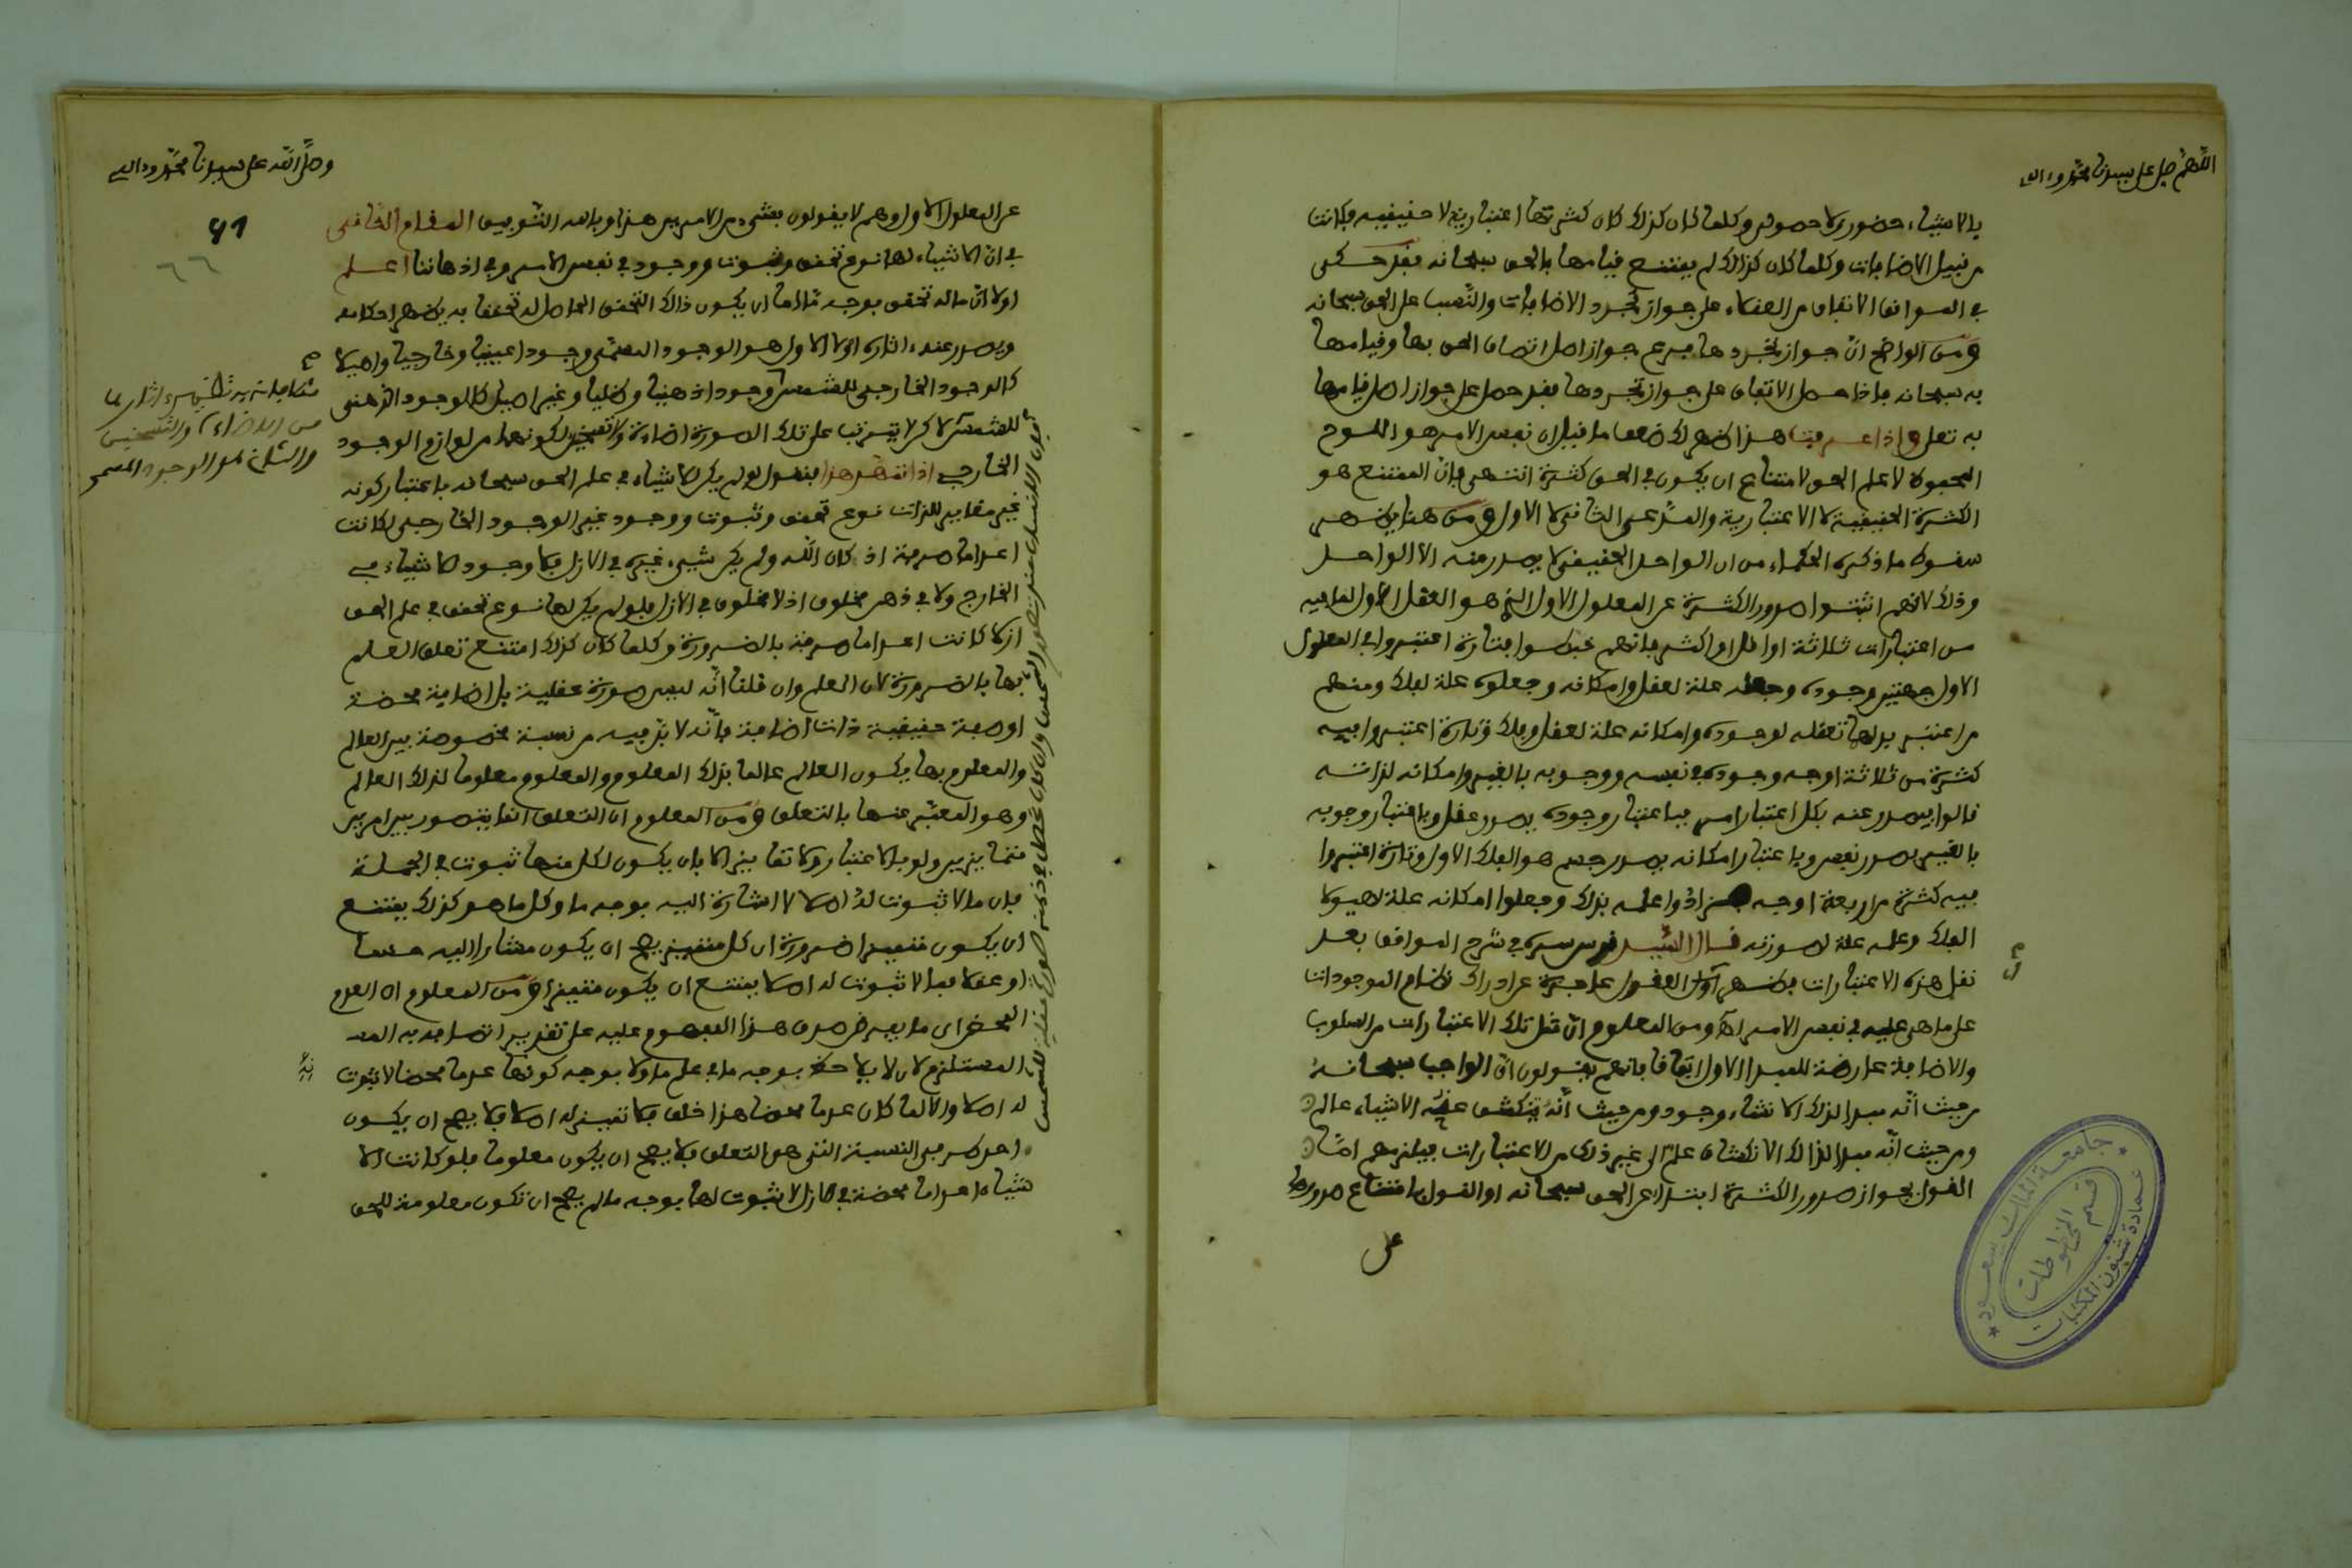 اللهم صل على سيدنا محمد وءاله
بالاشياء حضوري لا حصولي وكلما كان كذلك كان كثرتها اعتبارية لا حقيقية وكانت
من قبيل الاضافات وكلما كان كذلك لم يمتنع قيامها بالحق سبحانه فقد حكى
في المواقف الاتفاق من العقلاء على جواز تجرد الاضافات والنسب على الحق سبحانه
ومن الواضح ان جواز تجردها فرع جواز اصل اتصاف الحق بها وقيامها
به سبحانه فاذا حصل الاتفاق على جواز تجددها فقد حصل على جواز اصل قيامها
به تعلى واذا عرفت هذا ظهر لك ضعف ما قيل ان نفس الامر هو اللوح
المحفوظ لا علم الحق لامتناع ان يكون في الحق كثرة انتهى فان الممتنع هو
الكثرة الحقيقية لا الاعتبارية والمدعى الثاني لا الاول ومن هنا يظهر
سقوط ما ذكره الحكماء من ان الواحد الحقيقي لا يصدر منه الا الواحد
وذلك لانهم اثبتوا صدور الكثرة عن المعلول الاول الذي هو العقل الاول لما فيه
من اعتبارات ثلاثة او اقل او اكثر فانهم خبطوا فتارة اعتبروا في المعلول
الاول جهتين وجوده وجعله علة لعقل وامكانه وجعلوه علة لفلك ومنهم
من اعتبر بدلها تعقله لوجوده وامكانه علة لعقل وفلك وتارة اعتبروا فيه
كثرة من ثلاثة اوجه وجوده في نفسه ووجوبه بالغير وامكانه لذاته
قالوا يصدر عنه بكل اعتبار امر فباعتبار وجوده يصدر عقل وباعتبار وجوبه
بالغير يصدر نفس وباعتبار امكانه يصدر جسم هو الفلك الاول وتارة اعتبروا
فيه كثرة من اربعة اوجه فزادوا علمه بذلك وجعلوا امكانه علة لهيولا
الفلك وعلمه علة لصورته قال السيد قدس سره في شرح المواقف بعد
نقل هذه الاعتبارات يظهر ان العقول عاجزة عن ادراك نظام الموجودات
على ما هي عليه في نفس الامر اهـ ومن المعلوم ان مثل تلك الاعتبارات من السلوب
والاضافة عارضة للمبدا الاول اتفاقا فانهم يقولون ان الواجب سبحانه
من حيث انه مبدا لذلك الاشياء وجود ومن حيث انه ينكشف عنه الاشياء عالم
ومن حيث انه مبدا لذلك الانكشاف علم الى غير ذلك من الاعتبارات فيلزمهم اما
القول بجواز صدور الكثرة ابتداء عن الحق سبحانه او القول بامتناع صدورها
عن
جامعة الملك سعود
عمادة شئون المكتبات
قسم المخطوطات
وصلى الله على سيدنا محمد وءاله
61
٦٦
عن المعلول الاول وهم لا يقولون بشيء من الامرين هذا وبالله التوفيق المقام الثاني
في ان الاشياء لها نوع تحقق وثبوت ووجود في نفس الامر وفي اذهاننا اعلم
اولا ان ماله تحقق بوجه ما اما ان يكون ذلك التحقق الحاصل له تحققا به يظهر احكامه
ويصدر عنه ءاثاره اولا الاول هو الوجود المسمى وجودا عينيا وخارجيا واصيلا
كالوجود الخارجي للشمس وجودا ذهنيا وظليا وغير اصيل كالوجود الذهني
للشمس لاكن لا يترتب على تلك الصورة اضاءة ولا تسخين لكونهما من لوازم الوجود
الخارجي اذا تمهد هذا فنقول لو لم يكن للاشياء في علم الحق سبحانه باعتبار كونه
غير مغاير للذات نوع تحقق وثبوت ووجود غير الوجود الخارجي لكانت
اعداما صرفة اذ كان الله ولم يكن شيء غيره في الازل فلا وجود للاشياء في
الخارج ولا في ذهن مخلوق اذ لا مخلوق في الازل فلو لم يكن لها نوع تحقق في علم الحق
ازلا كانت اعداما صرفة بالضرورة وكلما كان كذلك امتنع تعلق العلم
بها بالضرورة لان العلم وان قلنا انه ليس صورة عقلية بل اضافية محضة
او صفة حقيقية ذات اضافة فانه لا بد فيه من نسبة مخصوصة بين العالم
والمعلوم بها يكون العالم عالما بذلك المعلوم والمعلوم معلوما لذلك العالم
وهو المعبر عنها بالتعلق ومن المعلوم ان التعلق انما يتصور بين امرين
متمايزين ولو بالاعتبار ولا تمايز الا بان يكون لكل منهما ثبوت في الجملة
فان ما لا ثبوت له اصلا لا اشارة اليه بوجه ما وكل ما هو كذلك يمتنع
ان يكون متميزا ضرورة ان كل متميز يصح ان يكون مشارا اليه حسا
او عقلا فما لا ثبوت له اصلا يمتنع ان يكون متميزا ومن المعلوم ان العدم
المحض اي ما يفرض صدق هذا المفهوم عليه على تقدير اتصافه به
المستلزم لان لا يلاحظ بوجه ما في علم ما ولا بوجه كونها عدما محضا لا ثبوت
له اصلا والا لما كان عدما محضا هذا خلف فلا تميز له اصلا فلا يصح ان يكون
احد طرفي النسبة التي هو التعلق فلا يصح ان يكون معلوما فلو كانت الا
شياء اعداما محضة في الازل لا ثبوت لها بوجه ما لم يصح ان تكون معلومة للحق